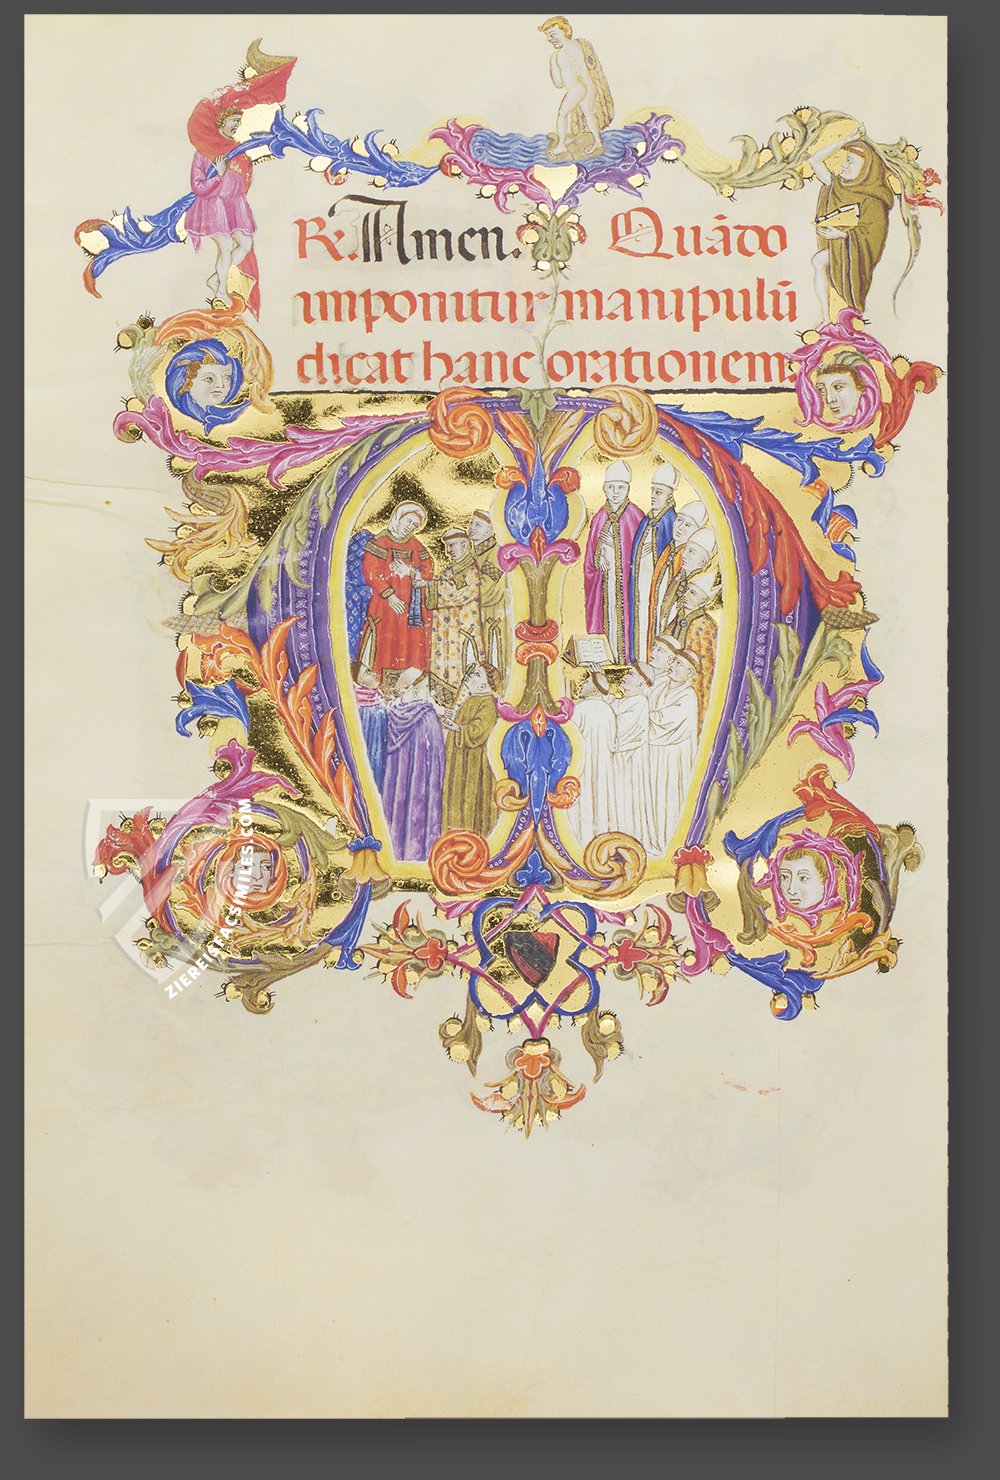 R. Amen. Quãdo
imponitur manipulũ
dicat hanc orationem.
M
ZIEREISFACSIMILES.COM